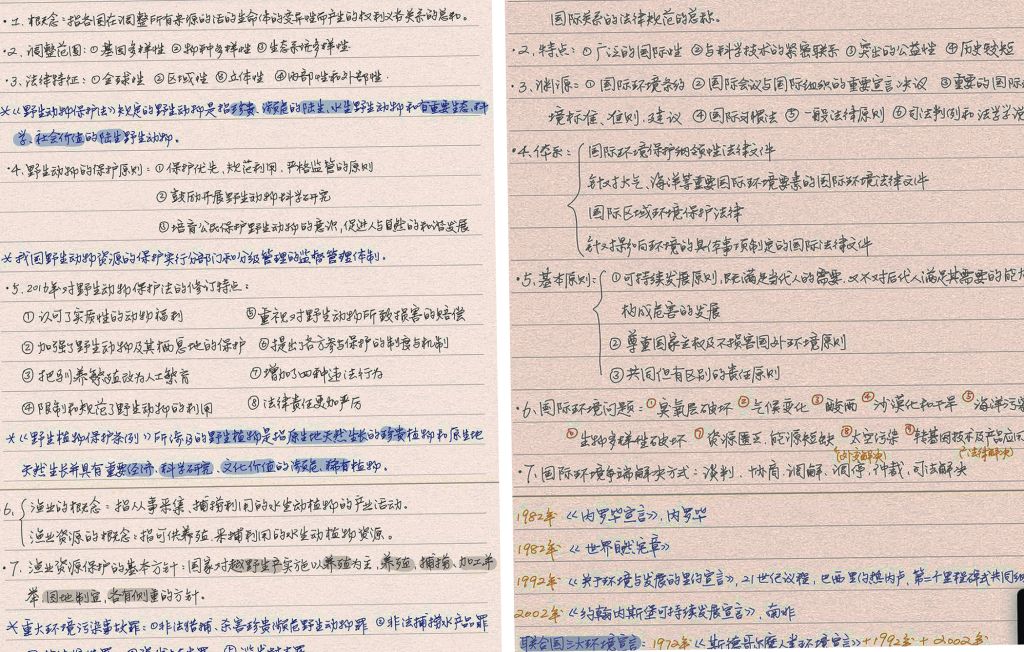 ·1. 概念：指各国在调整所有来源的活的生命体的变异性而产生的权利义务关系的总和。
·2. 调整范围：①基因多样性 ②物种多样性 ③生态系统多样性
·3. 法律特征：①全球性 ②区域性 ③立体性 ④内部性和外部性.
*《野生动物保护法》规定的野生动物是指珍贵、濒危的陆生、水生野生动物和有重要生态、科
学、社会价值的陆生野生动物.
·4. 野生动物的保护原则：①保护优先、规范利用、严格监管的原则
②鼓励开展野生动物科学研究
③培育公民保护野生动物的意识,促进人与自然的和谐发展
*我国野生动物资源的保护实行分部门和分级管理的监督管理体制.
·5. 2016年对野生动物保护法的修订特点：
①认可了实质性的动物福利 ⑤重视对野生动物所致损害的赔偿
②加强了野生动物及其栖息地的保护 ⑥提出了各方参与保护的制度与机制
③把驯养繁殖改为人工繁育 ⑦增加了四种违法行为
④限制和规范了野生动物的利用 ⑧法律责任更加严厉
*《野生植物保护条例》所涉及的野生植物是指原生地天然生长的珍贵植物和原生地
天然生长并具有重要经济、科学研究、文化价值的濒危、稀有植物.
6. 渔业的概念：指从事采集、捕捞利用的水生动植物的产业活动.
渔业资源的概念：指可供养殖、采捕利用的水生动植物资源。
·7. 渔业资源保护的基本方针：国家对越野生产实施以养殖为主,养殖、捕捞、加工并
举,因地制宜,各有侧重的方针.
*重大环境污染事故罪：①非法猎捕、杀害珍贵濒危野生动物罪 ②非法捕捞水产品罪
国际关系的法律规范的总称.
·2. 特点：①广泛的国际性 ②与科学技术的紧密联系 ③突出的公益性 ④历史较短
·3. 渊源：①国际环境条约 ②国际会议与国际组织的重要宣言、决议 ③重要的国际
境标准、准则、建议 ④国际习惯法 ⑤一般法律原则 ⑥司法判例和法学学说
·4. 体系：国际环境保护纲领性法律文件
针对大气、海洋等重要国际环境要素的国际环境法律文件
国际区域环境保护法律
针对保和向环境的具体事项制定的国际法律文件
·5. 基本原则：①可持续发展原则,既满足当代人的需要,又不对后代人满足其需要的能力
构成危害的发展
②尊重国家主权及不损害国外环境原则
③共同但有区别的责任原则
·6. 国际环境问题：①臭氧层破坏 ②气候变化 ③酸雨 ④沙漠化和干旱 ⑤海洋污染
⑥生物多样性破坏 ⑦资源匮乏,能源短缺 ⑧太空污染 ⑨转基因技术及产品应用
·7. 国际环境争端解决方式：谈判、协商、调解、调停、仲裁、司法解决
1982年《内罗毕宣言》,内罗毕
1982年《世界自然宪章》
1992年《关于环境与发展的里约宣言》,21世纪议程,巴西里约热内卢,第二个里程碑式共同纲
2002年《约翰内斯堡可持续发展宣言》,南非
联合国三大环境宣言：1972年《斯德哥尔摩人类环境宣言》+1992年+2002年